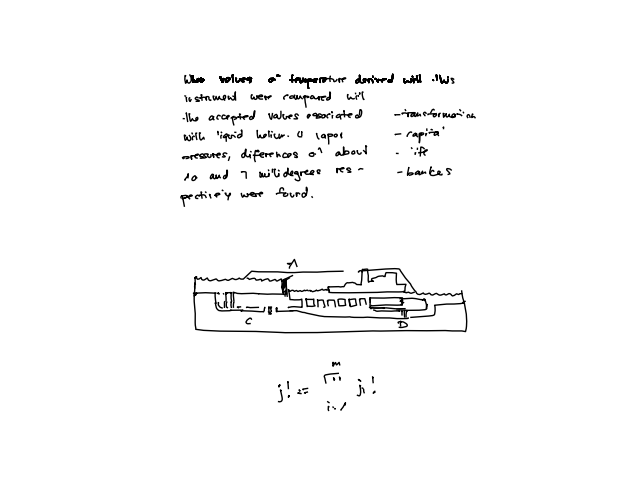 When values of temperature derived with this
instrument were compared with
the accepted values associated
with liquid helium 4 vapor
pressures, differences of about
10 and 7 millidegrees res-
pectively were found.
- transformation
- capital
- lift
- bankes
A
C
D
j! := ∏ j_i!
m
i=1